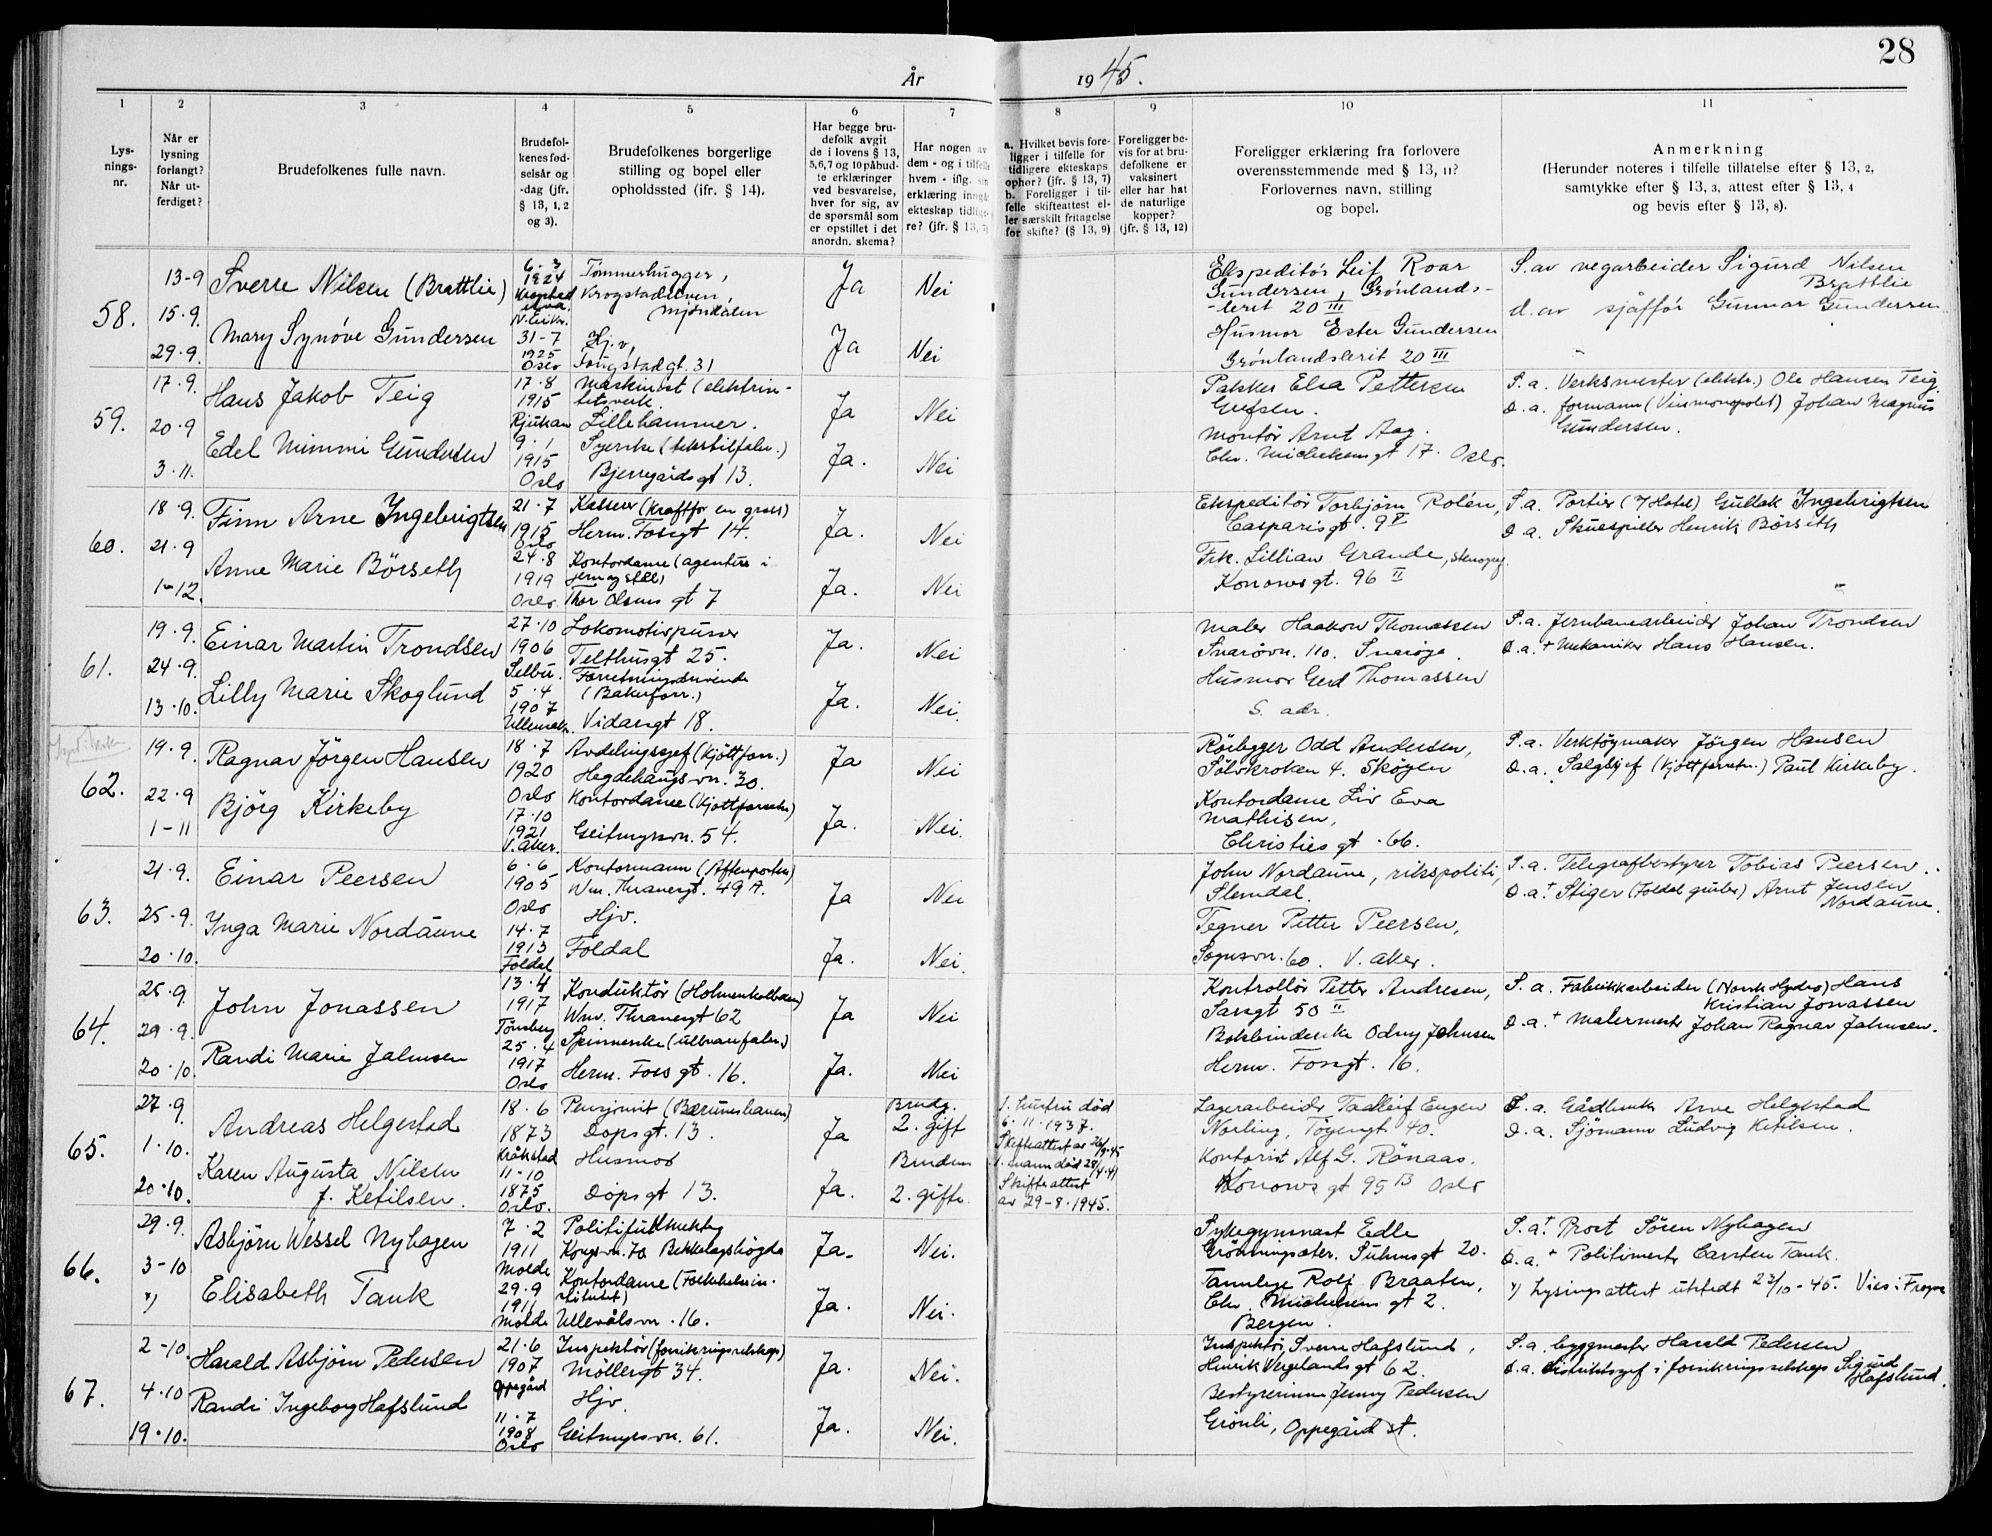 År 1945.
28
1
2
3
4
5
6
7
8
9
10
11
Lysningsnr.
Når er lysning forlangt? Når utferdiget?
Brudefolkenes fulle navn.
Brudefolkenes fødselsår og -dag (jfr. § 13, 1, 2 og 3).
Brudefolkenes borgerlige stilling og bopel eller opholdssted (jfr. § 14).
Har begge brudefolk avgit de i lovens § 13, 5, 6, 7 og 10 påbudte erklæringer ved besvarelse, hver for sig, av de spørsmål som er opstillet i det anordn. skema?
Har nogen av dem - og i tilfelle hvem - iflg. sin erklæring inngått ekteskap tidligere? (jfr. § 13, 7)
a. Hvilket bevis foreligger i tilfelle for tidligere ekteskaps ophør? (jfr. § 13, 7) b. Foreligger i tilfelle skifteattest eller særskilt fritagelse for skifte? (§ 13, 9)
Foreligger bevis for at brudefolkene er vaksinert eller har hat de naturlige kopper? (jfr. § 13, 12)
Foreligger erklæring fra forlovere overensstemmende med § 13, 11? Forlovernes navn, stilling og bopel.
Anmerkning (Herunder noteres i tilfelle tillatelse efter § 13, 2, samtykke efter § 13, 3, attest efter § 13, 4 og bevis efter § 13, 8).
58.
13-9
15.9.
29.9.
Sverre Nilsen (Brattlie)
6.3 1924
N. Eiker.
Tømmerhugger,
Mjøndalen
Ja
Nei
Mary Synøve Gundersen
31-7 1925 Oslo
Hj.v,
Fougstadgt. 31
Ja
Nei
Ekspeditør Leif Roar
Gundersen, Grønlands-
-leret 20 III
Husmor Ester Gundersen
Grønlandsleret 20 III
S. av vegarbeider Sigurd Nilsen
Brattlie
d. av sjåffør Gunnar Gundersen
59.
17.9.
20.9
3.11.
Hans Jakob Teig
17.8 1915 Rjukan
Maskinist (elektrisi-
tetsverk
Lillehammer.
Ja
Nei
Edel Mimmi Gundersen
9.1 1915 Oslo
Syerske
Bjerregårdsgt 13.
Ja.
Nei
Elsa Pettersen
Grefsen.
Montør Arnt Aag.
Chr. Michelsensgt 17. Oslo.
S. a. Verksmester (elektr.) Ole Hansen Teig.
D. a. formann (Vinmonopolet) Johan Magnus
Gundersen.
60.
18.9.
21.9
1-12.
Finn Arne Ingebrigtsen
21.7 1915 Oslo
Kasserer (Kraftfor en gross)
Herm. Fossgt 14.
Ja.
Nei
Anne Marie Börseth
24.8 1919 Oslo
Kontordame (agentur i
jern og stål)
Thor Olsens gt 7
Ja.
Nei
Ekspeditør Torbjørn Rolén,
Casparisgt. 9 V
Frk. Lillian Grande, stenogr.
Konowsgt. 96 II
S. a. Portier Gullak Ingebrigtsen
D. a. Skuespiller Henrik Börseth
61.
19.9.
24.9.
13.10.
Einar Martin Trondsen
27.10 1906 Selbu.
Lokomotivpusser
Telthusgt 25.
Ja.
Nei
Lilly Marie Skoglund
5.4 1907
Forretningsdrivende
(Bakerforr.)
Vidarsgt 18.
Ja.
Nei.
Maler Haakon Thomassen
Snarøvn. 110. Snarøya.
Husmor Gerd Thomassen
S. adr.
S. a. Jernbanearbeider Johan Trondsen
D. a. + Mekaniker Hans Hansen.
62.
19.9.
22.9
1-11
Ragnar Jörgen Hansen
18.7 1920 Oslo
Avdelingssjef (Kjøttforr.)
Hegdehaugsvn. 30.
Ja
Nei
Bjørg Kirkeby
17.10 1921 V. Aker.
Kontordame
Geitmyrsvn. 54.
Ja.
Nei.
Rørlegger Odd Andersen,
Sølvkroken 4. Skøyen
Kontordame Liv Eva
Mathisen,
Christies gt. 66.
S. a. Verktøymaker Jörgen Hansen
D. a. Salgssjef (Kjøttforretn.) Paul Kirkeby.
63.
21.9.
25.9.
20.10.
Einar Peersen
6.6 1905 Oslo
Kontormann (Aftenposten)
Wm. Thranesgt. 49 A.
Ja
Nei
Inga Marie Nordaune
14.7 1913 Foldal
Hjv.
Foldal
Ja.
Nei.
John Nordaune, rikspoliti,
Slemdal.
Tegner Petter Peersen,
Sognsvn. 60. V. Aker.
S. a. Telegrafbestyrer Tobias Peersen.
D. a. + Stiger (Foldal gruber) Arnt Jensen
Nordaune.
64.
25.9.
29.9.
20.10.
John Jonassen
13.4 1917 Tønsberg
Konduktør (Holmenkolbanen)
Wm. Thranesgt 62
Ja
Nei
Randi Marie Jahnsen
25.4 1917 Oslo
Spinnerske (ullvarefabr.)
Herm. Foss gt. 16.
Ja.
Nei
Kontrollør Petter Andresen,
Sarsgt 50 II
Bokbinderske Odny Johnsen
Herm. Fossgt. 16.
S. a. Fabrikkarbeider (Norsk Hydro) Hans
Kristian Jonassen
D. a. + Malermester Johan Ragnar Jahnsen.
65.
27.9.
1.10.
20.10.
Andreas Helgestad
18.6 1873 Kråkstad
Pensjonist
Dops gt. 13.
Ja
Brudg. 2. gift
Karen Augusta Nilsen
f. Ketilsen.
11-10 1875 Oslo.
Husmor
Dops gt 13.
Ja.
Bruden 2. gifte.
1. hustru död
6.11.1937.
Skifteattest av 26/9-45
1. mann død 28/4.41
Skifteattest
av 29-8.1945.
Lagerarbeider Tadleif Eugen
Norling, Tøyengt 40.
Kontorist Alf G. Rønaas.
Konows gt 95 B Oslo
S. a. Gårdbruker Arne Helgestad
D. a. Sjömann Ludvig Ketilsen.
66.
29.9.
3-10
x)
Asbjørn Wessel Nyhagen
7.2 1911 Molde
Politifullmektig
Kongsvn. 70 Bekkelagshøgda
Ja.
Nei.
Elisabeth Tank
29.9 1911 Molde
Kontordame (Folkehelsein-
stituttet)
Ullevålsvn. 16.
Ja.
Nei.
Sykegymnast Edle
Grönningsæter. Suhmsgt 20.
Tannlege Rolf Braaten,
Chr. Michelsens gt 2.
Bergen.
S. a. + Prost Søren Nyhagen
D. a. + Politimester Carsten Tank.
x) Lysingsattest utstedt 23/10-45. Vies i Frogner
67.
2-10.
4.10
19.10.
Harald Asbjörn Pedersen
21.6 1907 Oppegård
Inspektør (forsikringsselskap)
Møllergt 34.
Ja.
Nei.
Randi Ingeborg Hafslund
11.7 1908 Oslo
Hjv.
Geitmyrsvn. 61.
Ja.
Nei.
Inspektør Sverre Hafslund,
Henrik Vergelands gt 62.
Bestyrerinne Jenny Pedersen
Grönli, Oppegård st.
S. a. byggmester Harald Pedersen
d. a. distriktssjef i forsikringsselskap Sigurd
Hafslund.